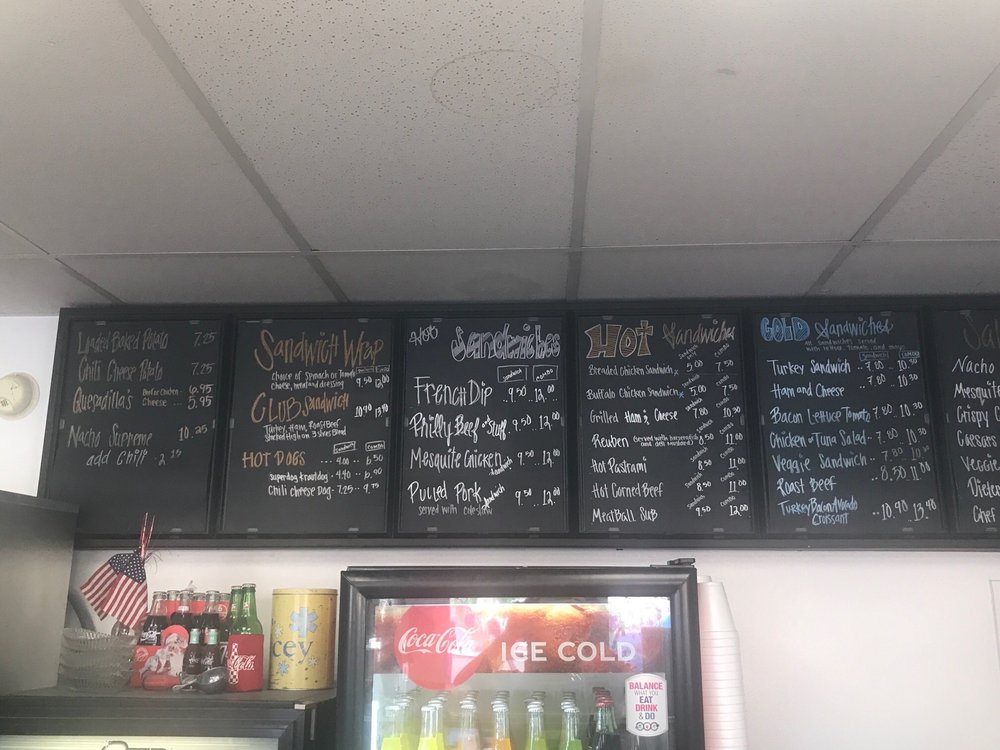 Loaded Baked Potato 7.25
Chili Cheese Potato 7.25
Quesadilla's Beef or Chicken 6.95
Cheese ... 5.95
Nacho Supreme 10.25
add Chili .
Sandwich Wrap
Choice of Spinach or Tomato
Cheese, meat and dressing
Wrap Combo
9.50 12.00
CLUB Sandwich
10.90 13.40
Turkey, Ham, Roast Beef
Stacked High on 3 slices Bread
Sandwich Combo
HOT DOGS ... 4.00 .. 6.50
superdog & kraut dog .. 4.40 .. 6.90
Chili Cheese Dog . 7.25 .. 9.75
Hot Sandwiches
Sandwich Combo
French Dip 9.50 .. 12.00
Philly Beef or Surf 9.50 .. 12.00
Mesquite Chicken Sandwich 9.50 .. 12.00
Pulled Pork Sandwich 9.50 .. 12.00
served with coleslaw
HOT Sandwiches
Sandwich Only Combo
Breaded Chicken Sandwich 5.00 7.50
Sandwich Combo
Buffalo Chicken Sandwich 5.00 7.50
Sandwich Combo
Grilled Ham & Cheese 7.80 10.30
Sandwich Combo
Reuben served with horseradish and deli mustard 8.50 11.00
Sandwich Combo
Hot Pastrami 8.50 11.00
Sandwich Combo
Hot Corned Beef 8.50 11.00
Sandwich Combo
MeatBall Sub 9.50 12.00
COLD Sandwiches
All Sandwiches Served
with lettuce, tomato, and mayo
Sandwich Combo
Turkey Sandwich .. 7.80 .. 10.30
Ham and Cheese .. 7.80 .. 10.30
Bacon Lettuce Tomato 7.80 .. 10.30
Chicken or Tuna Salad .. 7.80 10.30
Veggie Sandwich .. 7.80 .. 10.30
Roast Beef .. 8.50 11.00
Turkey Bacon Avocado
Croissant .. 10.90 .. 13.40
Nacho
Mesquite
Crispy
Caesars
Veggie
Dieter
Chef
Coca-Cola
ICE COLD
BALANCE
WHAT YOU
EAT
DRINK
& DO
cey